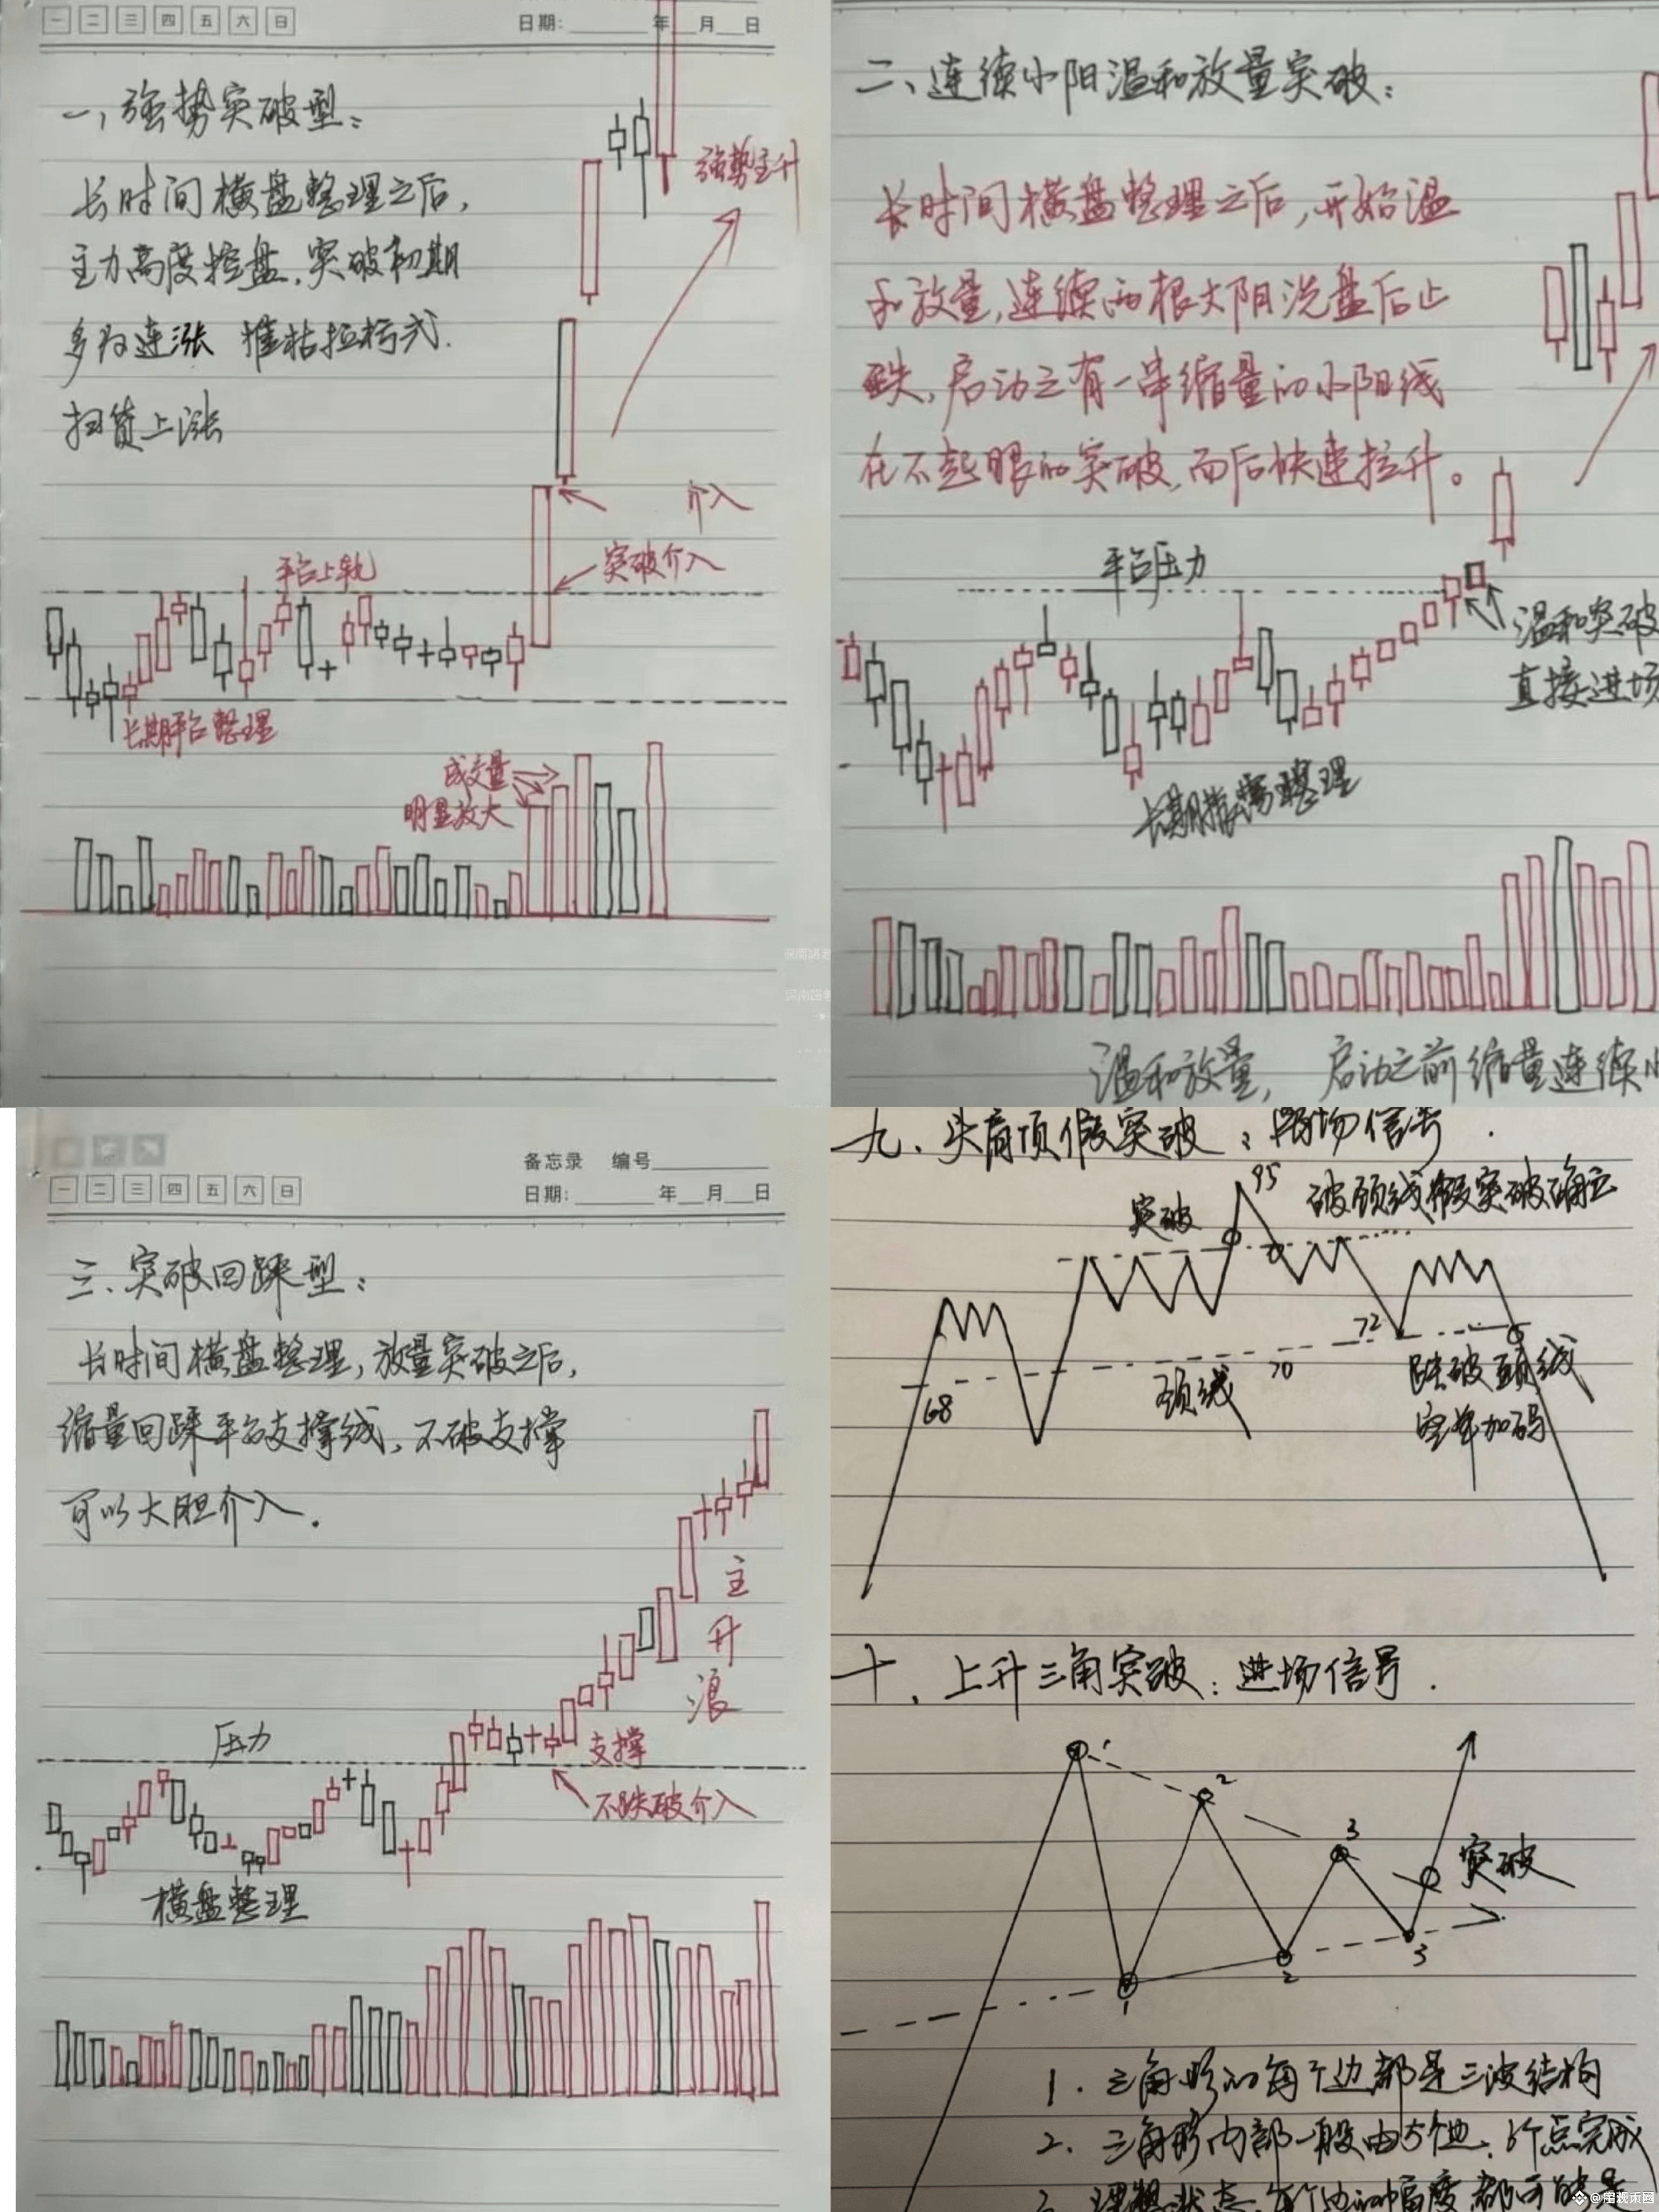 一 二 三 四 五 六 日
日期: 年 月 日
一、强势突破型：
长时间横盘整理之后，
主力高度控盘，突破初期
多为连涨 摧枯拉朽式
扫货上涨
强势主升
介入
突破介入
平台上轨
长期平台整理
成交量
明显放大
二、连续小阳温和放量突破：
长时间横盘整理之后，开始温
和放量，连续两根大阴洗盘后止
跌，启动之有一串缩量的小阳线
在不起眼的突破，而后快速拉升。
平台压力
温和突破
直接进场
长期横盘整理
温和放量， 启动之前缩量连续小
备忘录 编号
一 二 三 四 五 六 日
日期: 年 月 日
三、突破回踩型：
长时间横盘整理，放量突破之后，
缩量回踩平台支撑线，不破支撑
可以大胆介入．
主升浪
压力
支撑
不跌破介入
横盘整理
九、头肩顶假突破：离场信号．
突破
95
破颈线假突破确立
72
70
68
颈线
跌破颈线
空单加码
十、上升三角突破：进场信号．
1
2
3
突破
1
2
3
1．三角形的每个边都是三波结构
2．三角形内部一般由5个边、6个点完成